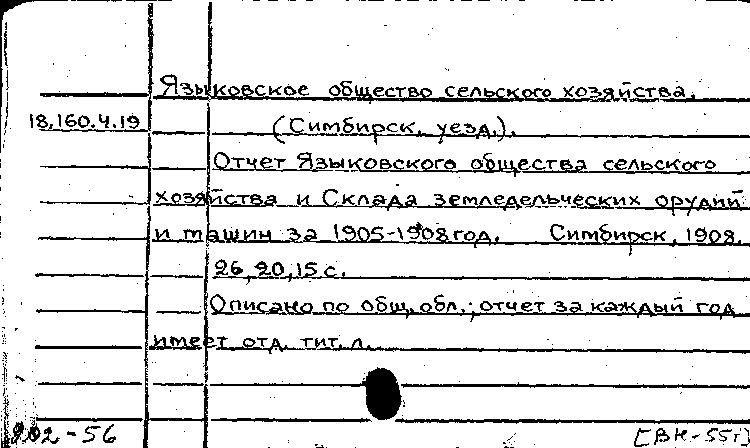 Языковское общество сельского хозяйства.
18.160.4.19 (Симбирск. уезд.).
Отчет Языковского общества сельского
хозяйства и Склада земледельческих орудий
и машин за 1905-1908 год. Симбирск, 1908.
26, 20, 15 с.
Описано по общ. обл.; отчет за каждый год
имеет отд. тит. л.
202-56 [ВН-55г]